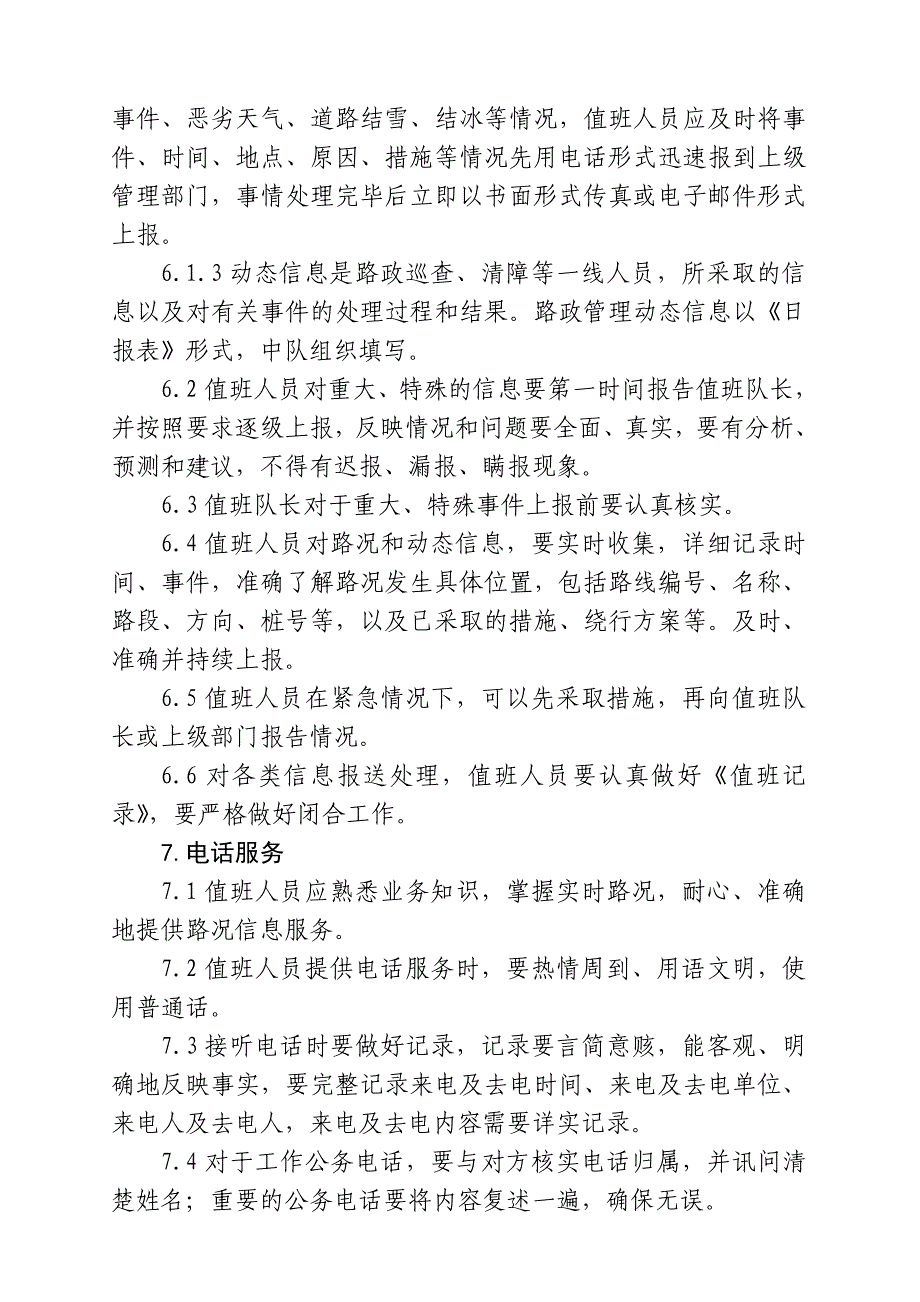 事件、恶劣天气、道路结雪、结冰等情况，值班人员应及时将事
件、时间、地点、原因、措施等情况先用电话形式迅速报到上级
管理部门，事情处理完毕后立即以书面形式传真或电子邮件形式
上报。
6.1.3动态信息是路政巡查、清障等一线人员，所采取的信
息以及对有关事件的处理过程和结果。路政管理动态信息以《日
报表》形式，中队组织填写。
6.2值班人员对重大、特殊的信息要第一时间报告值班队长，
并按照要求逐级上报，反映情况和问题要全面、真实，要有分析、
预测和建议，不得有迟报、漏报、瞒报现象。
6.3值班队长对于重大、特殊事件上报前要认真核实。
6.4值班人员对路况和动态信息，要实时收集，详细记录时
间、事件，准确了解路况发生具体位置，包括路线编号、名称、
路段、方向、桩号等，以及已采取的措施、绕行方案等。及时、
准确并持续上报。
6.5值班人员在紧急情况下，可以先采取措施，再向值班队
长或上级部门报告情况。
6.6对各类信息报送处理，值班人员要认真做好《值班记
录》，要严格做好闭合工作。
7.电话服务
7.1值班人员应熟悉业务知识，掌握实时路况，耐心、准确
地提供路况信息服务。
7.2值班人员提供电话服务时，要热情周到、用语文明，使
用普通话。
7.3接听电话时要做好记录，记录要言简意赅，能客观、明
确地反映事实，要完整记录来电及去电时间、来电及去电单位、
来电人及去电人，来电及去电内容需要详实记录。
7.4对于工作公务电话，要与对方核实电话归属，并讯问清
楚姓名；重要的公务电话要将内容复述一遍，确保无误。